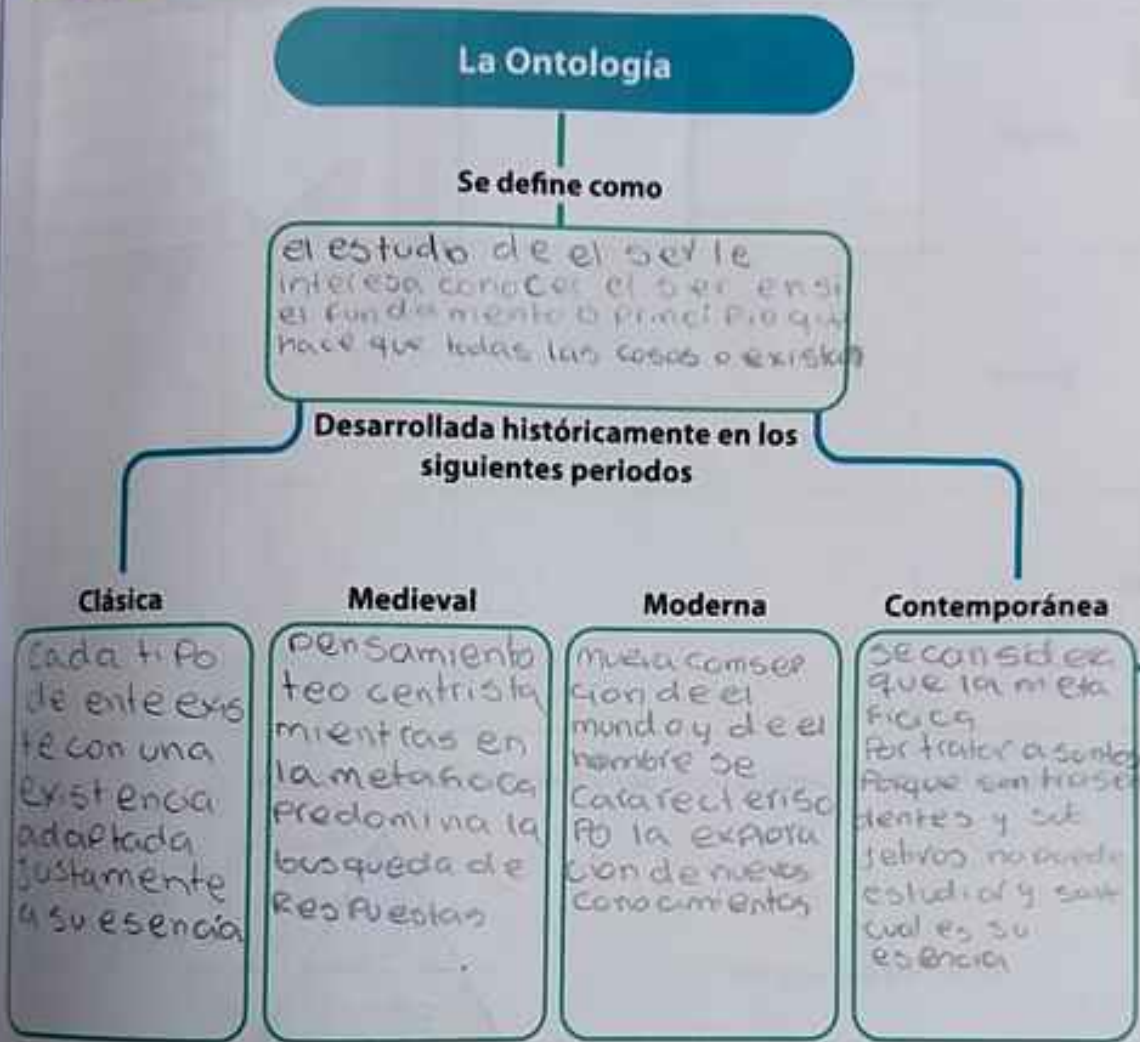 La Ontología
Se define como
el estudio de el ser le
interesa conocer el ser en si
el fundamento o principio qu
hace que todas las cosas o existan
Desarrollada históricamente en los
siguientes periodos
Clásica
cada tipo
de ente exis
te con una
existencia
adaptada
justamente
a su esencia
Medieval
pensamiento
teo centrista
mientras en
la
predomina la
busqueda de
Respuestas
Moderna
nueva comsep
cion de el
mundo y de el
hombre se
Cararecteriso
Po la explora
cion de nuevos
conocimientos
Contemporánea
se consider
que la meta
ficica
Por tratar asuntos
Porque son trasen
dentes y sub
jetivos no puede
estudiar y
cual es su
esencia